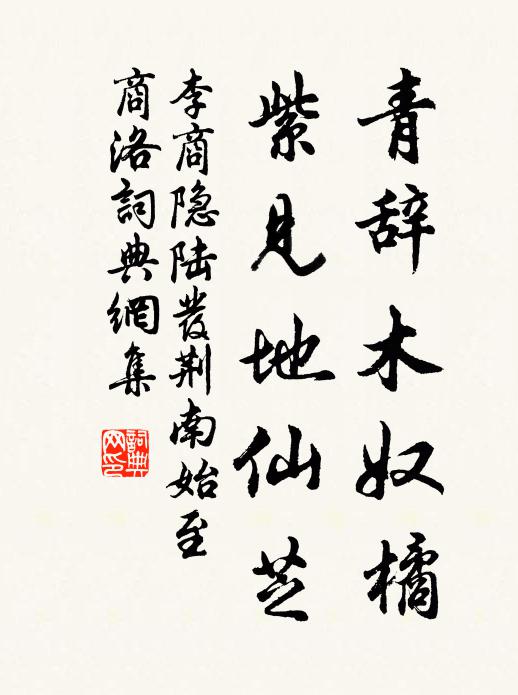 青辞木奴橘
紫见地仙芝
李商隐陆发荆南始至
商洛詞典網集
詞典
网印